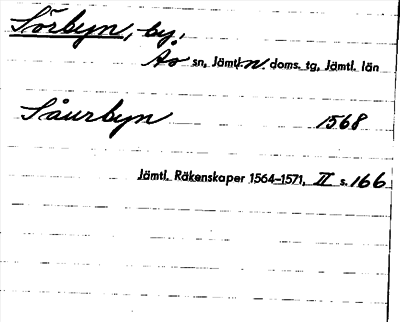 Sörbyn, by,
Ås sn, Jämtl. n. doms. tg, Jämtl. län
Såurbyn 1568
Jämtl. Räkenskaper 1564–1571, II s. 166